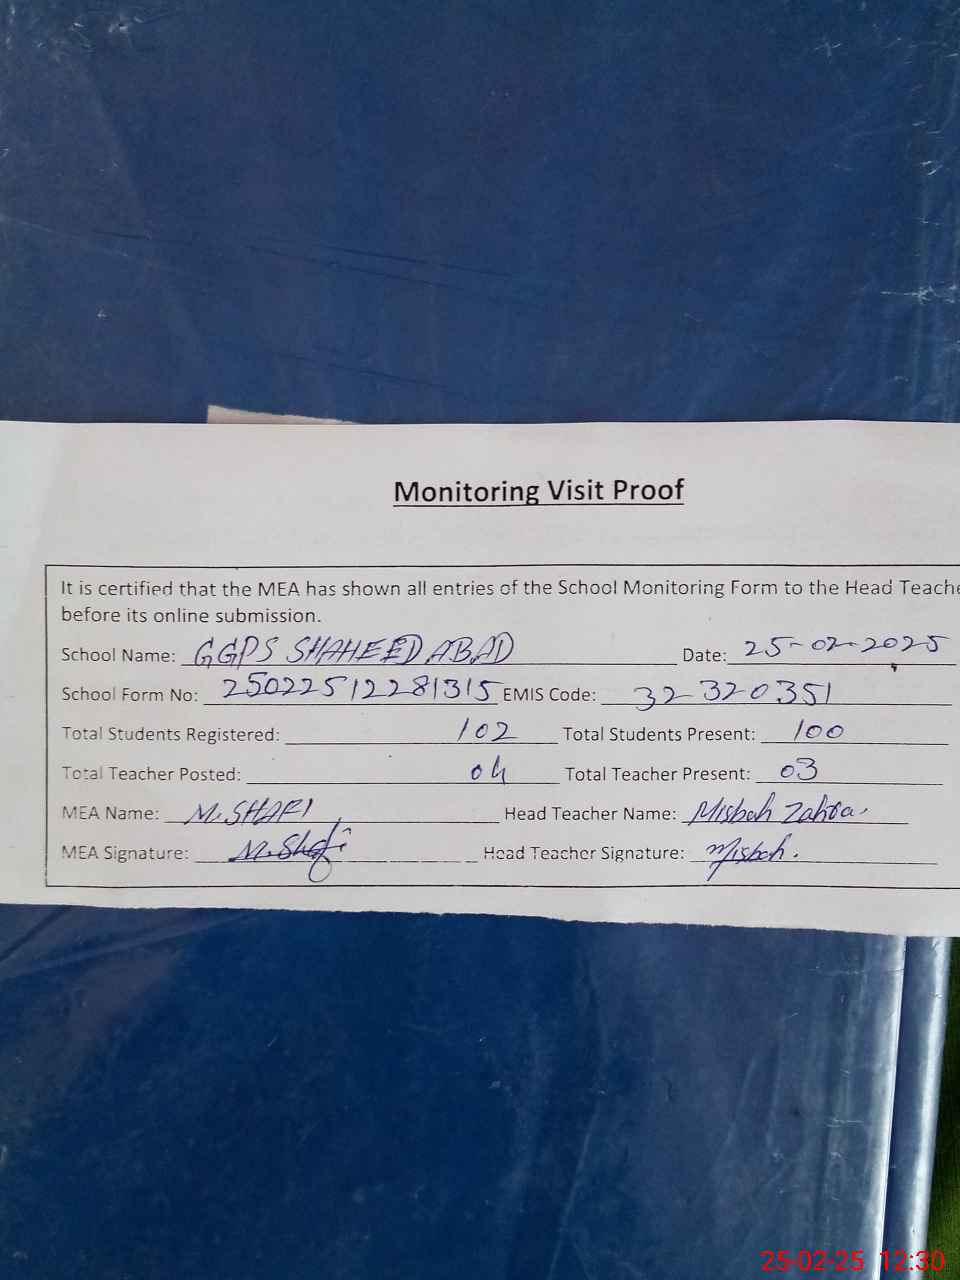 Monitoring Visit Proof
It is certified that the MEA has shown all entries of the School Monitoring Form to the Head Teache
before its online submission.
School Name: GGPS SHAHEED ABAD Date: 25-02-2025
School Form No: 25022512281315 EMIS Code: 32320351
Total Students Registered: 102 Total Students Present: 100
Total Teacher Posted: 04 Total Teacher Present: 03
MEA Name: M. SHAFI Head Teacher Name: Misbah Zahra.
MEA Signature: M. Shafi Head Teacher Signature: Misbah.
25-02-25 12:30